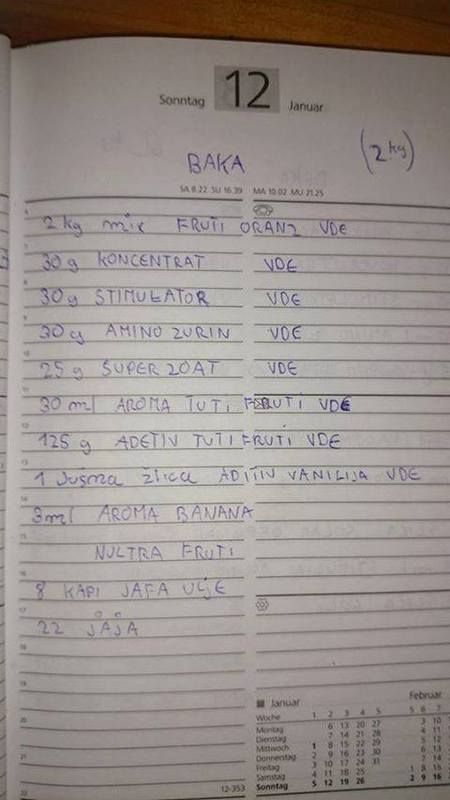 Sonntag 12 Januar
BAKA (2 kg)
SA 8.22 SU 16.39 MA 10.02 MU 21.25
2 kg mix FRUTI ORANZ VDE
30 g KONCENTRAT VDE
30 g STIMULATOR VDE
30 g AMINO ZURIN VDE
25 g SUPER ZOAT VDE
30 ml AROMA TUTI FRUTI VDE
125 g ADETIV TUTI FRUTI VDE
1 Jušma žlica ADITIV VANILIJA VDE
3ml AROMA BANANA
NULTRA FRUTI
8 KAPI JAFA ULJE
22 JAJA
Januar Februar
Woche 1 2 3 4 5 5 6 7
Montag 6 13 20 27 3 10
Dienstag 7 14 21 28 4 11
Mittwoch 1 8 15 22 29 5 12
Donnerstag 2 9 16 23 30 6 13
Freitag 3 10 17 24 31 7 14
Samstag 4 11 18 25 1 8 15
Sonntag 5 12 19 26 2 9 16
12-353